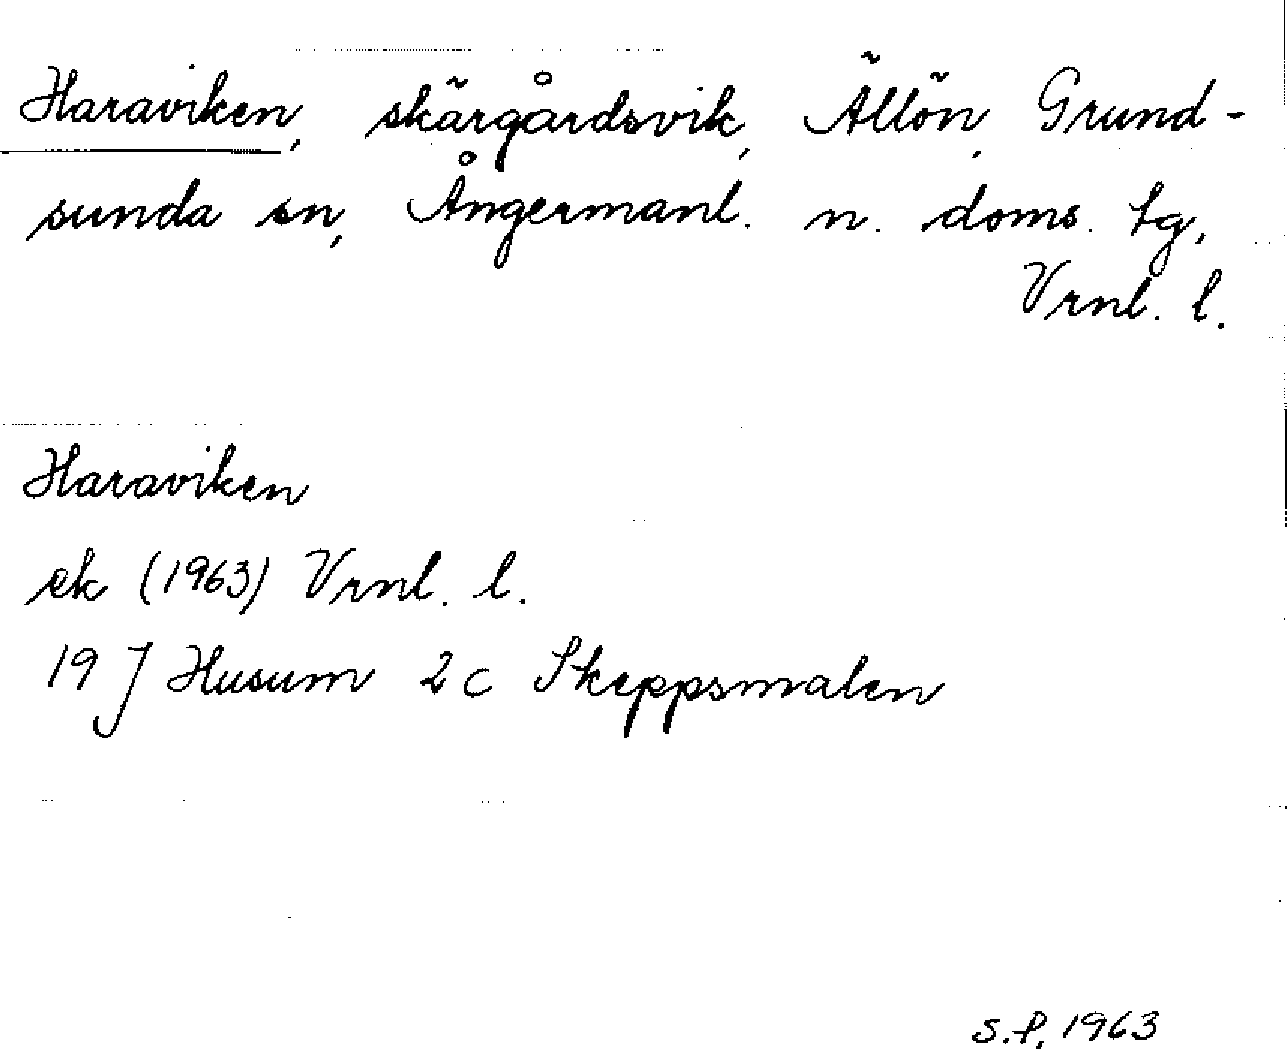 Haraviken, skärgårdsvik, Ällön, Grund-
sunda sn, Ångermanl. n. doms. tg,
Vrnl. l.
Haraviken
ek (1963) Vrnl. l.
19 J Husum 2c Skeppsmalen
S.P. 1963